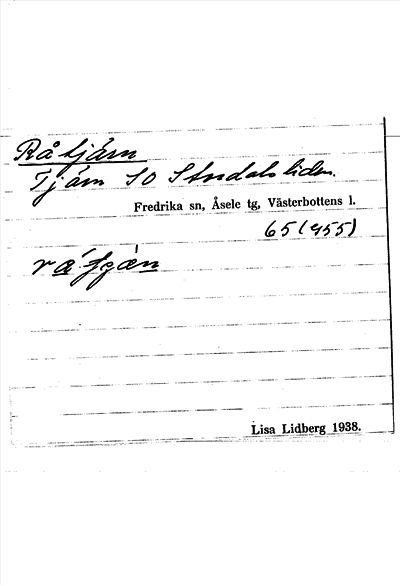 Råtjärn
Tjärn SO Studalsliden.
Fredrika sn, Åsele tg, Västerbottens l.
65(455)
Lisa Lidberg 1938.